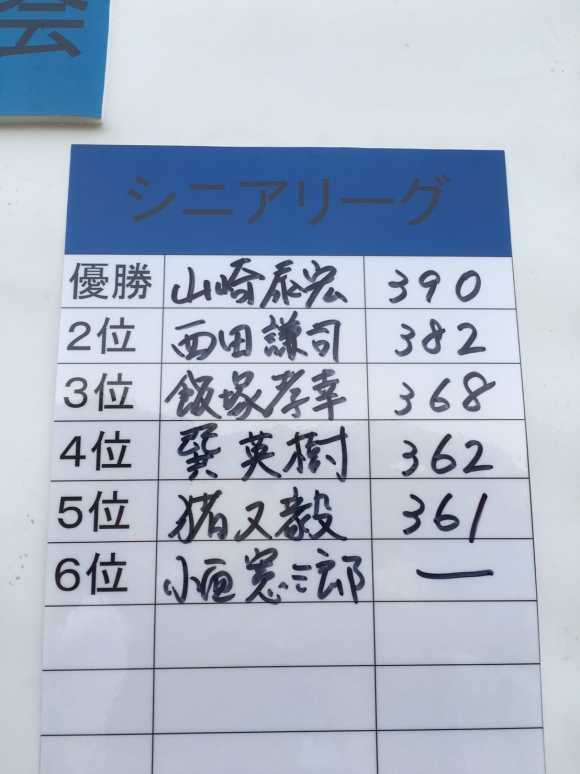 会
シニアリーグ
優勝 山崎泰宏 390
2位 西田謙司 382
3位 飯塚孝幸 368
4位 巽英樹 362
5位 猪又毅 361
6位 小垣憲三郎 ー